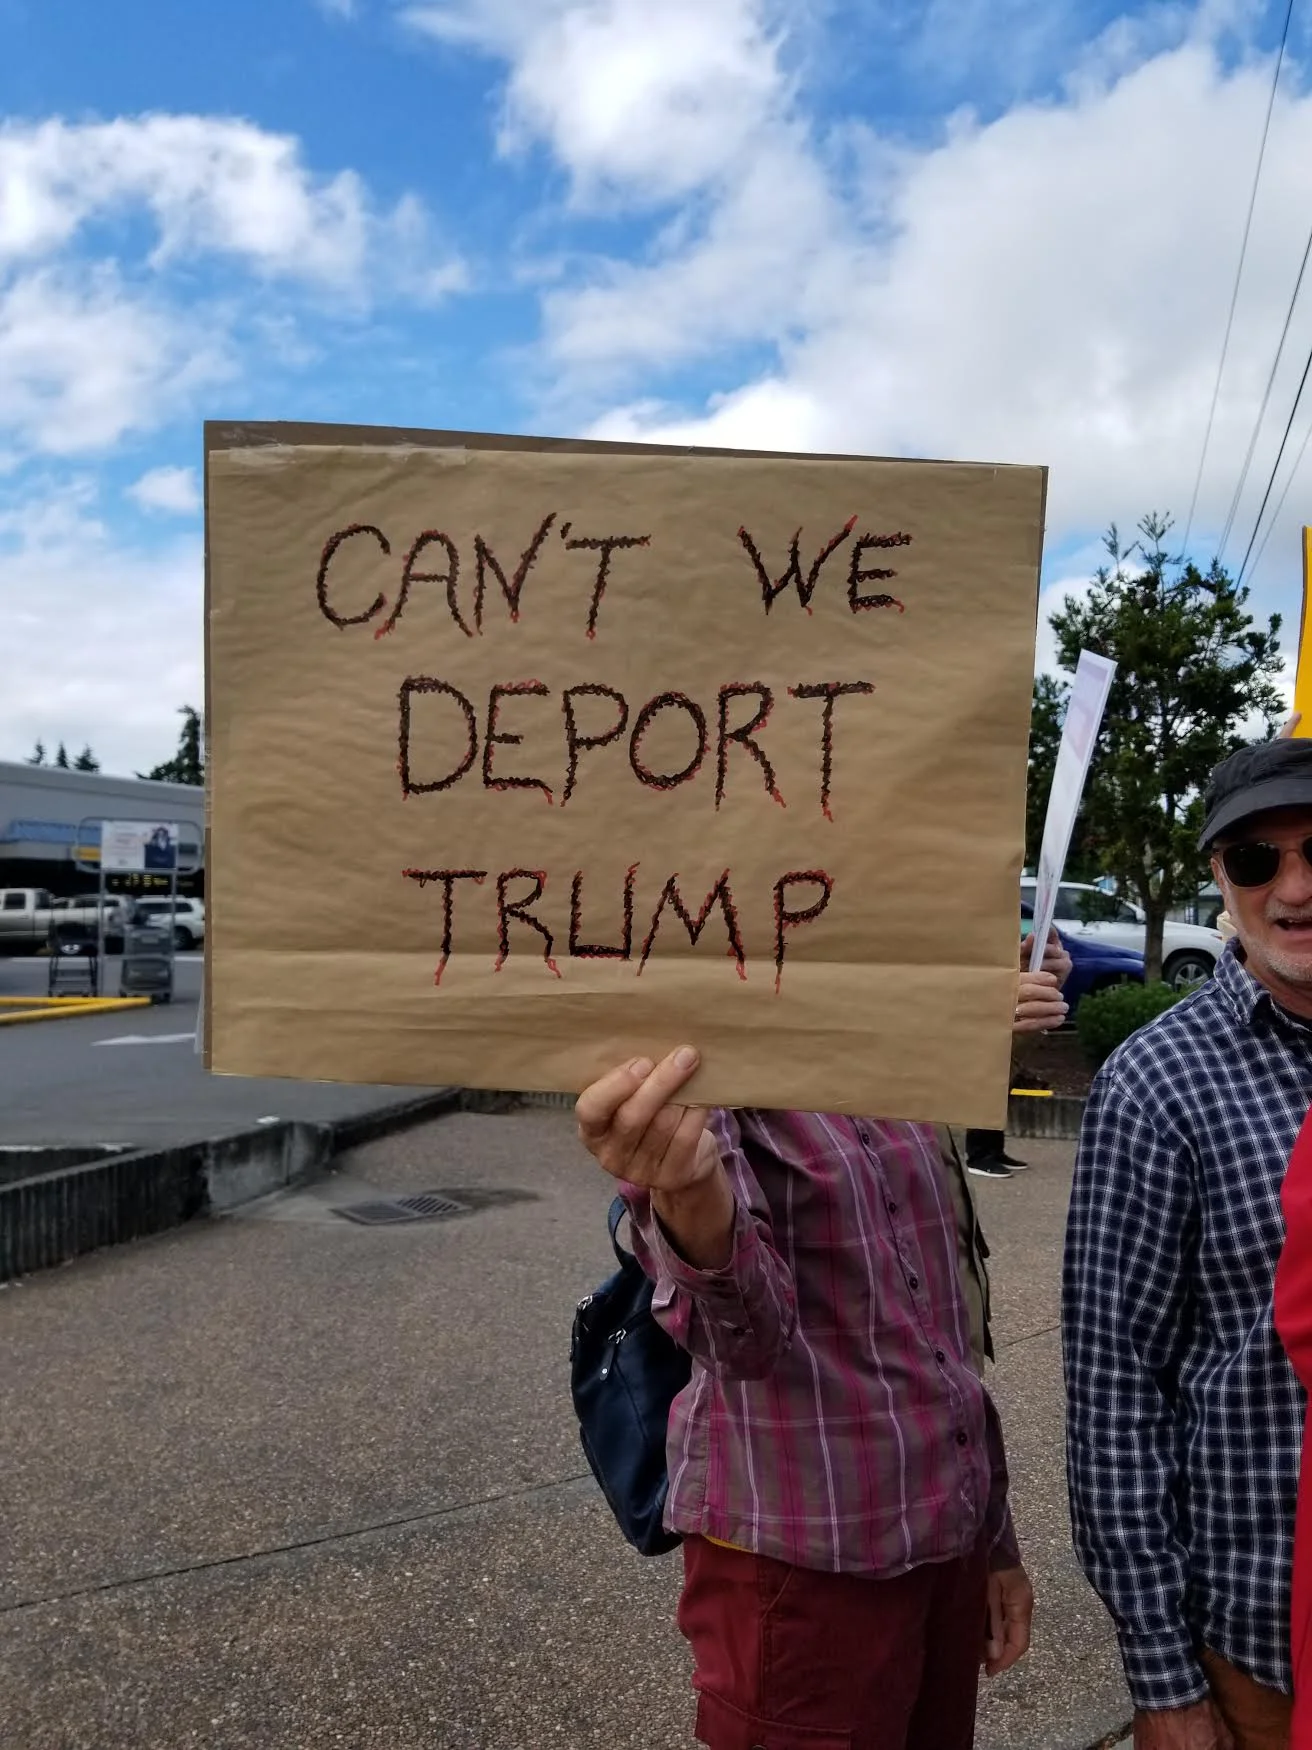 CAN'T WE
DEPORT
TRUMP